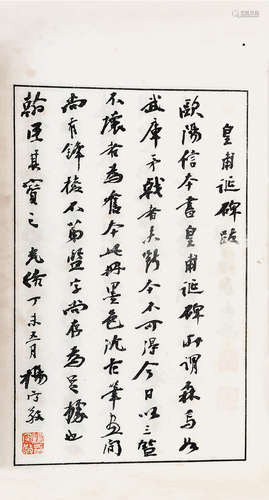 皇甫誕碑跋
歐陽信本書皇甫誕碑所謂森焉如
武庫矛戟者矣斷本不可得今日以三監
不壞者為舊本此冊墨色沈古筆畫間
尚有鋒棱不第監字尚存為足據也
翰臣其寶之 光緒丁未五月 楊守敬